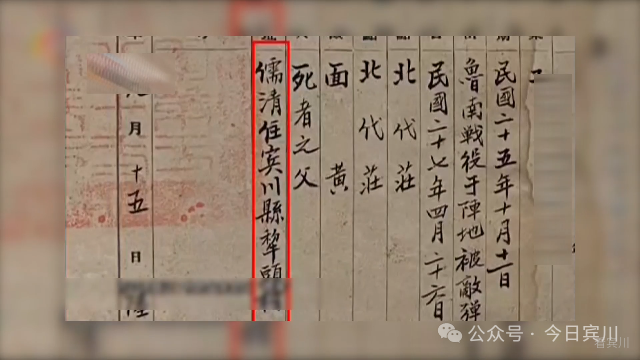 民國二十五年十月十一日
魯南戰役于陣地被敵彈
民國二十七年四月二十六日
北代莊
北代莊
面黃
死者之父
儒清住賓川縣犂頭
月十五日
公众号·今日宾川
看宾川